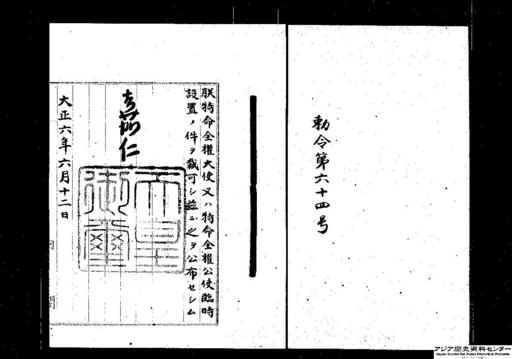 勅令第六十四号
朕特命全權大使又ハ特命全權公使臨時
設置ノ件ヲ裁可シ茲ニ之ヲ公布セシム
嘉仁
天皇
御璽
大正六年六月十二日
アジア歴史資料センター
Japan Center for Asian Historical Records